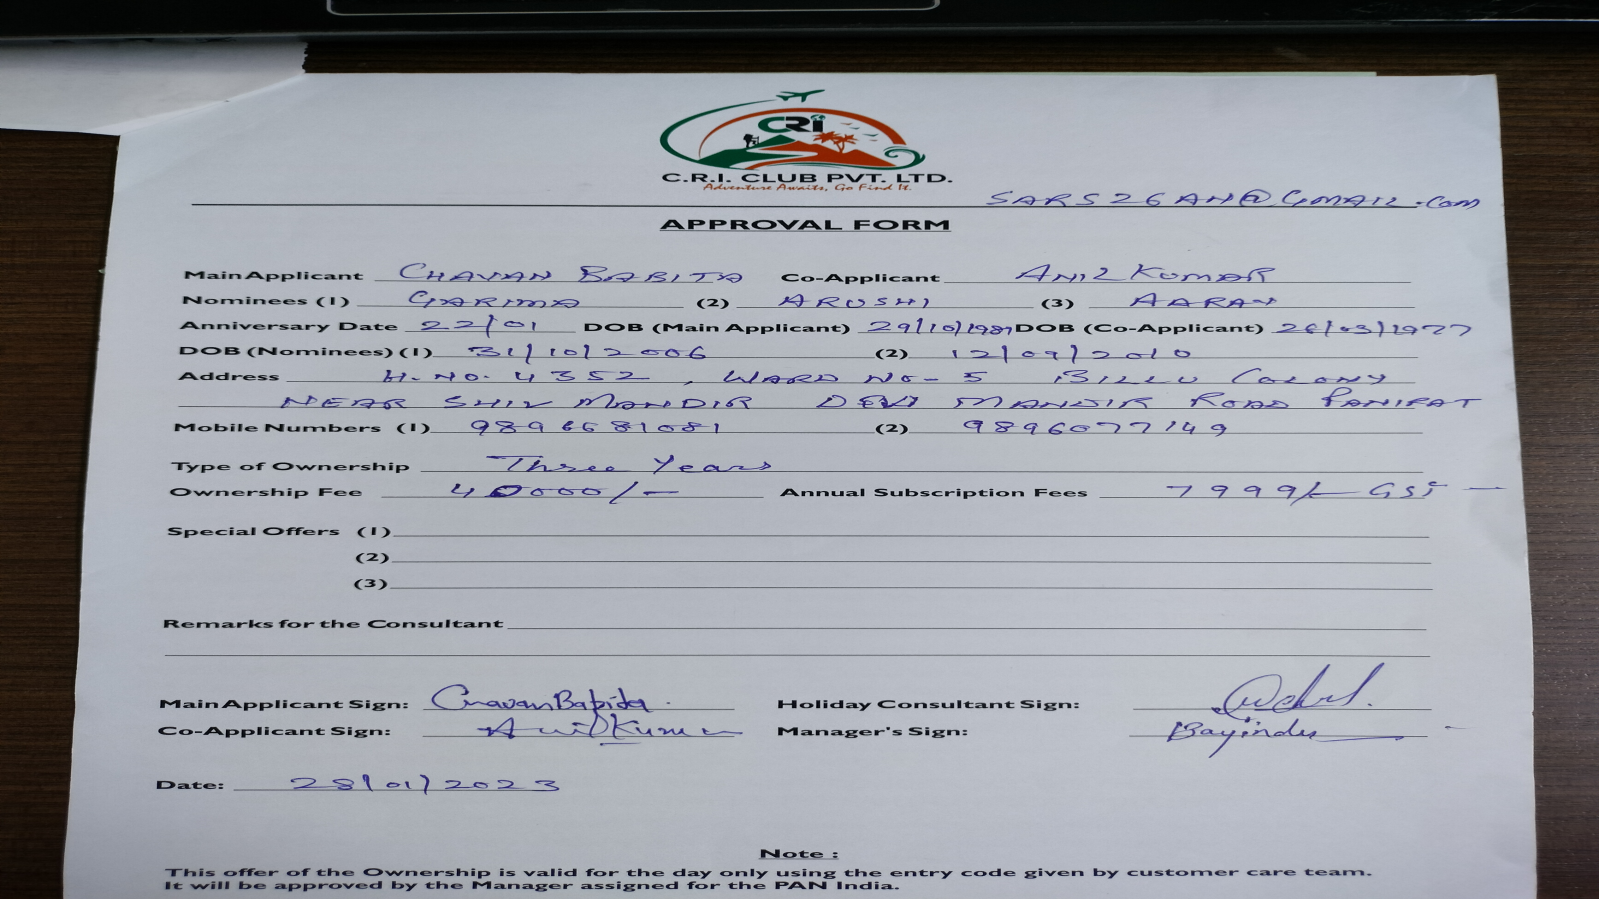 CRI
C.R.I. CLUB PVT. LTD.
Adventure Awaits, Go Find It.
SARS26AH@GMAIL.com
APPROVAL FORM
Main Applicant CHAVAN BABITA Co-Applicant ANIL KUMAR
Nominees (1) GARIMA (2) ARUSHI (3) AARAV
Anniversary Date 22/01 DOB (Main Applicant) 29/10/1981 DOB (Co-Applicant) 26/03/1977
DOB (Nominees) (1) 31/10/2006 (2) 12/09/2010
Address H.NO. 4352, WARD NO-5 BILLU COLONY
NEAR SHIV MANDIR DEVI MANDIR ROAD PANIPAT
Mobile Numbers (1) 9896681081 (2) 9896077149
Type of Ownership Three Years
Ownership Fee 40000/- Annual Subscription Fees 7999/- GST
Special Offers (1)
(2)
(3)
Remarks for the Consultant
Main Applicant Sign: Chavan Babita Holiday Consultant Sign:
Co-Applicant Sign: Anil Kumar Manager's Sign:
Date: 28/01/2023
Note :
This offer of the Ownership is valid for the day only using the entry code given by customer care team.
It will be approved by the Manager assigned for the PAN India.